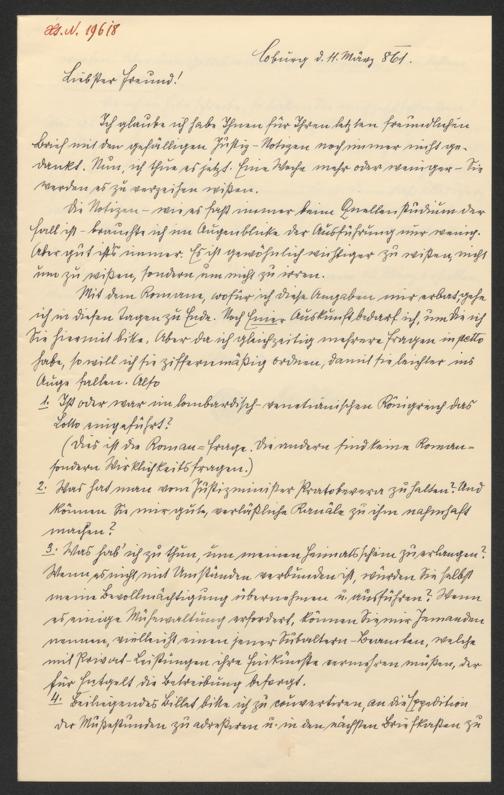 H.I.N. 19618
Coburg d. 11. März 861.
Liebster Freund!
Ich glaube ich habe Ihnen für Ihren letzten freundlichen
Brief mit den gefälligen Justiz-Notizen noch immer nicht ge-
dankt. Nun, ich thue es jetzt. Eine Woche mehr oder weniger – Sie
werden es zu verzeihen wißen.
Die Notizen – wie es fast immer beim Quellenstudium der
Fall ist – brauchte ich im Augenblicke der Ausführung nur wenig.
Aber gut ist's immer. Es ist gewöhnlich wichtiger zu wißen, nicht
um zu wißen, sondern um nicht zu irren.
Mit dem Romane, wofür ich diese Angaben mir erbat, gehe
ich in diesen Tagen zu Ende. Noch Einer Auskunft bedarf ich, um die ich
Sie hiermit bitte. Aber da ich gleichzeitig mehrere Fragen in petto
habe, so will ich sie ziffernmäßig ordnen, damit sie leichter ins
Auge fallen. Also
1. Ist oder war im lombardisch-venetianischen Königreich das
Lotto eingeführt?
(Dies ist die Roman=Frage. Die andern sind keine Roman-
sondern Wirklichkeitsfragen.)
2. Was hat man vom Justizminister Pratobevera zu halten? Und
können Sie mir gute, verläßliche Kanäle zu ihm namhaft
machen?
3. Was hab' ich zu thun, um meinen Heimatsschein zu erlangen?
Wenn es nicht mit Umständen verbunden ist, würden Sie selbst
meine Bevollmächtigung übernehmen u. ausführen? Wenn
es einige Mühewaltung erfordert, können Sie mir Jemanden
nennen, vielleicht einen jener Subaltern-Beamten, welche
mit Privat-Leistungen ihre Einkünfte vermehren müßen, der
für Entgelt die Betreibung besorgt.
4. Beiliegendes Billet bitte ich zu couvertiren, an die Expedition
der Mußestunden zu adreßiren u. in den nächsten Briefkasten zu